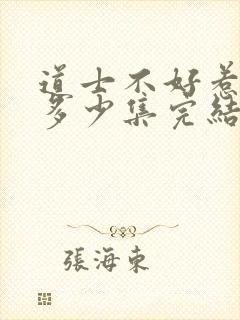 道士不好惹
多少集完結
張海東